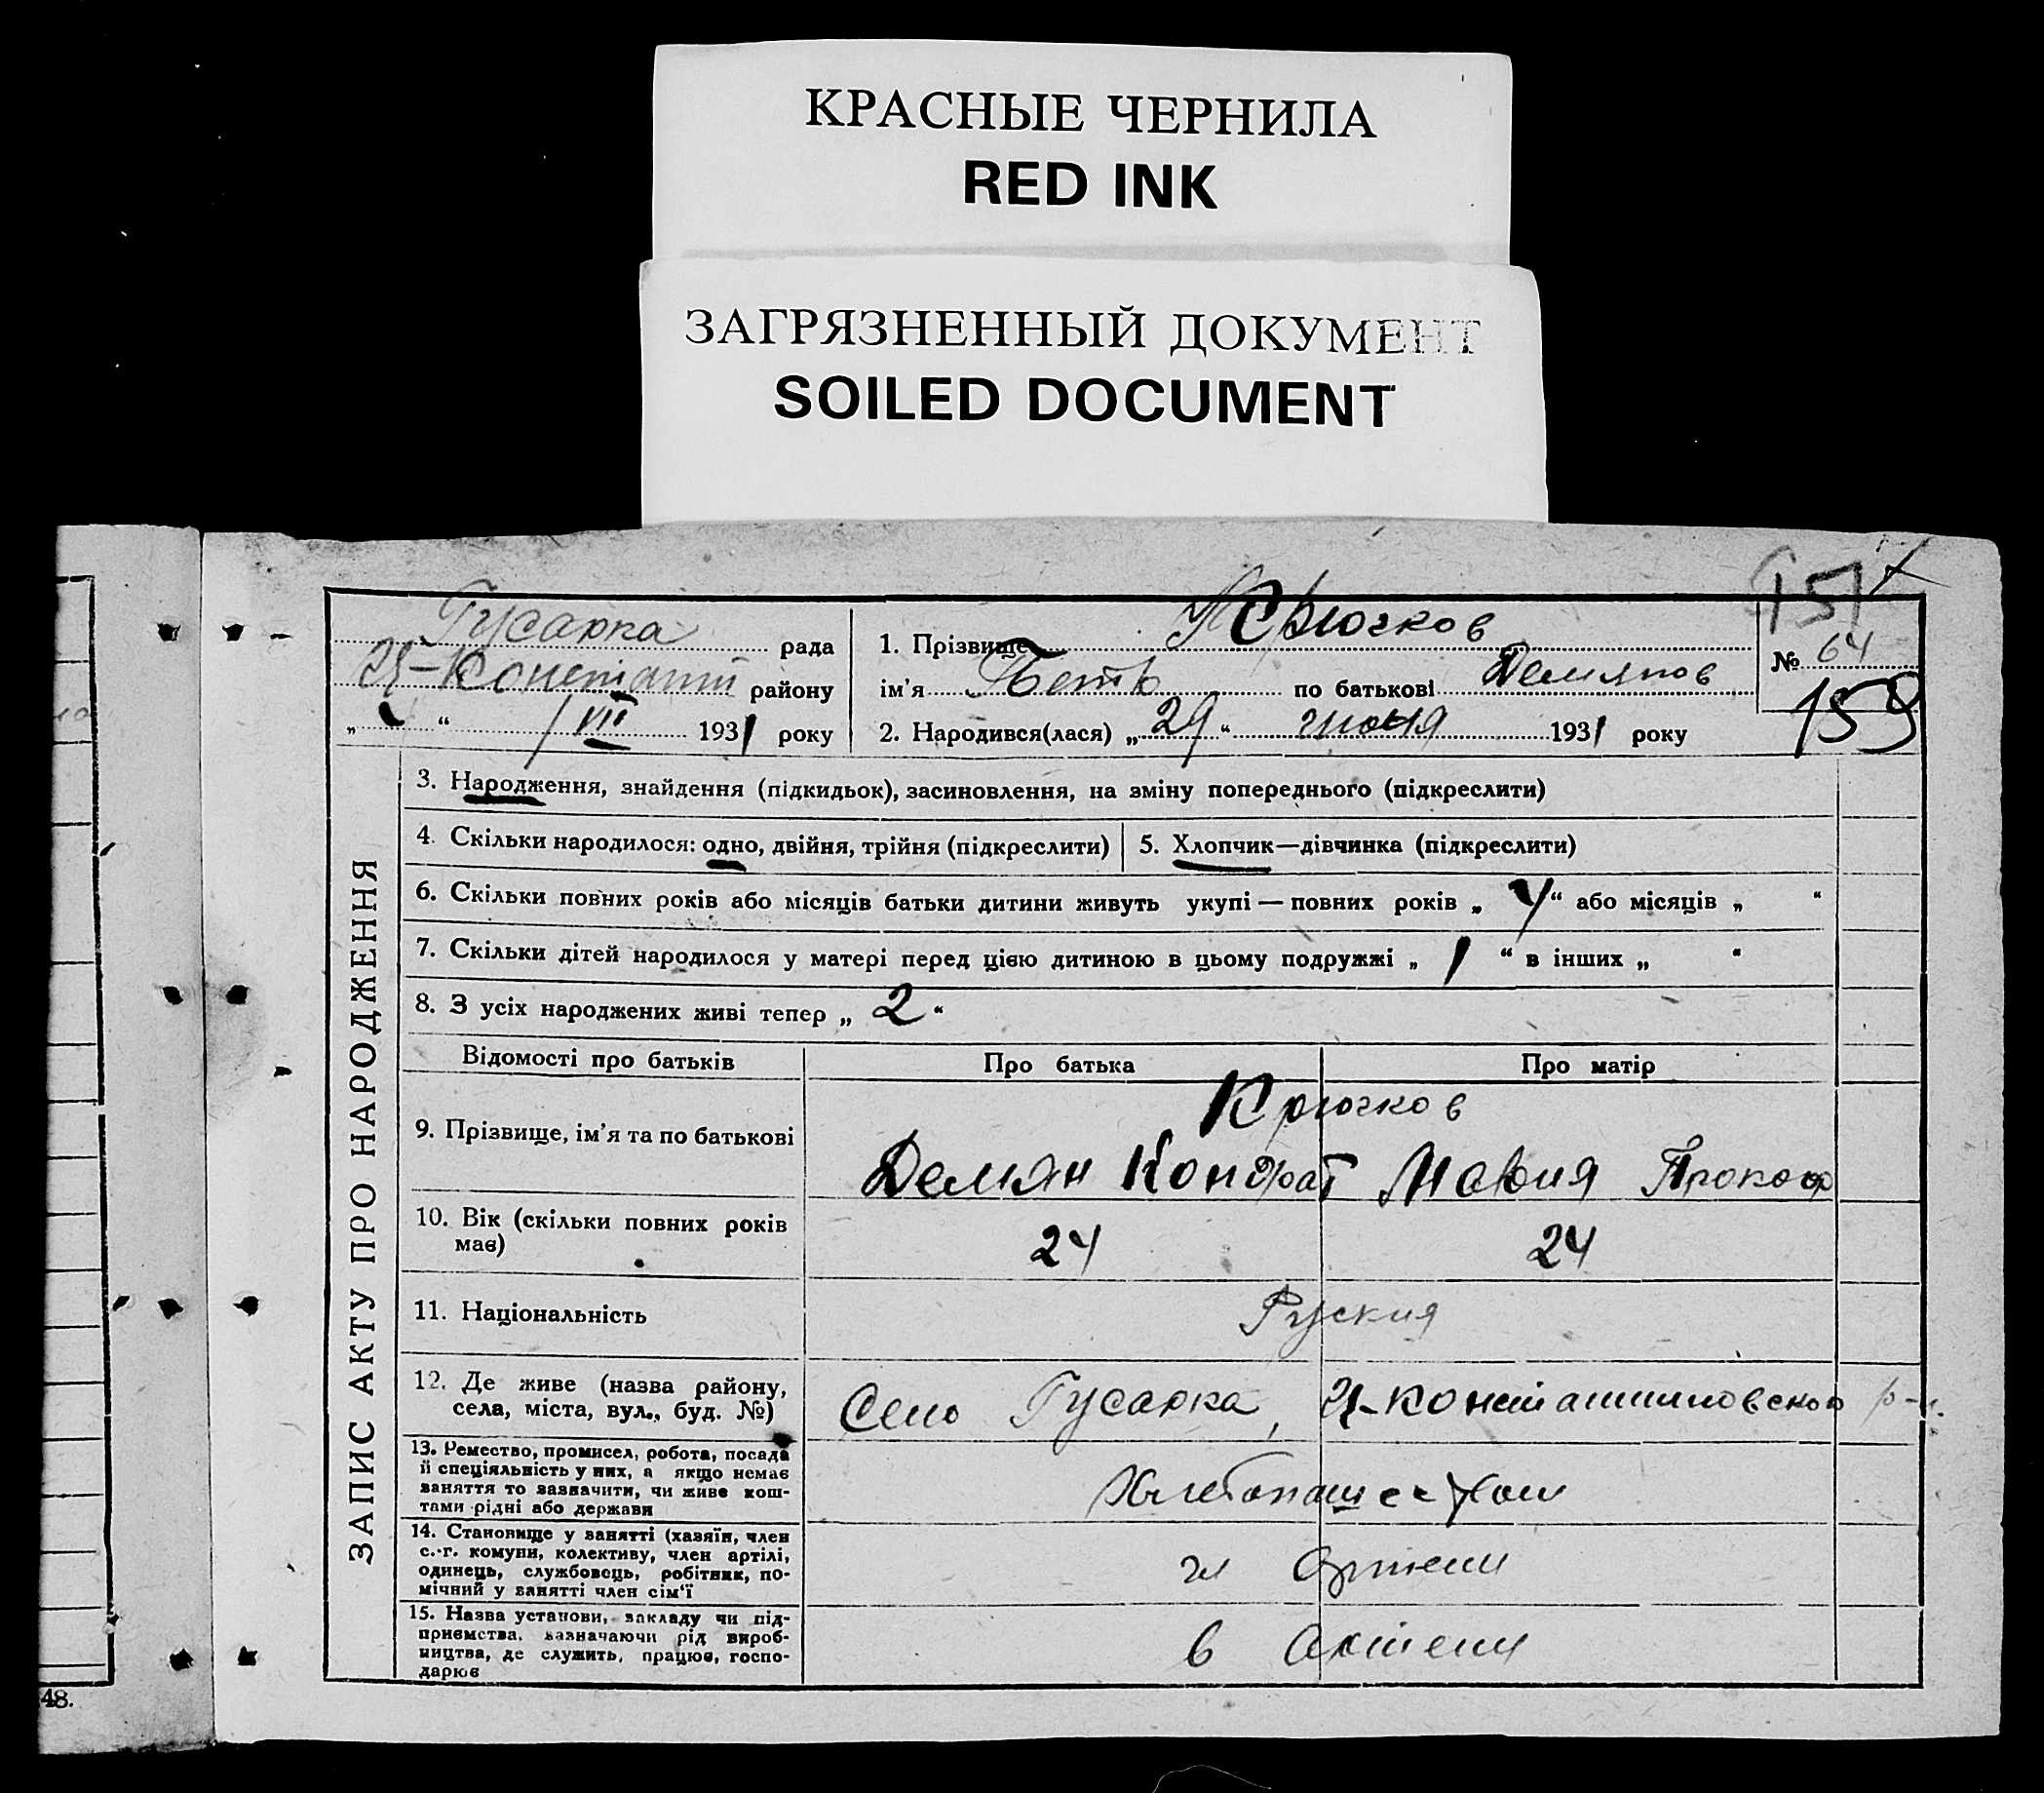 КРАСНЫЕ ЧЕРНИЛА
RED INK
ЗАГРЯЗНЕННЫЙ ДОКУМЕНТ
SOILED DOCUMENT
151
Гусарка рада
района
„ “ 1 VII 1931 року
1. Прізвище Крючков
ім’я Петр по батькові Демянов
2. Народився(лася) „29“ июня 1931 року
№ 64
159
ЗАПИС АКТУ ПРО НАРОДЖЕННЯ
3. Народження, знайдення (підкидьок), засиновлення, на зміну попереднього (підкреслити)
4. Скільки народилося: одно, двійня, трійня (підкреслити)
5. Хлопчик—дівчинка (підкреслити)
6. Скільки повних років або місяців батьки дитини живуть укупі — повних років „ 4 “ або місяців „ “
7. Скільки дітей народилося у матері перед цією дитиною в цьому подружжі „ 1 “ в інших „ “
8. З усіх народжених живі тепер „ 2 “
Відомості про батьків Про батька Про матір
9. Прізвище, ім’я та по батькові
Крючков
Демян Кондрат Мария Прокоф
10. Вік (скільки повних років
має)
24 24
11. Національність
Руския
12. Де живе (назва району,
села, міста, вул., буд. №)
Село Гусарка, р-н.
13. Ремество, промисел, робота, посада
й спеціяльність у них, а якщо немає
заняття то зазначити, чи живе кош-
тами рідні або держави
14. Становище у занятті (хазяїн, член
с.-г. комуни, колективу, член артілі,
одинець, службовець, робітник, по-
мічний у занятті член сім'ї
чл Артели
15. Назва установи, закладу чи під-
приємства, зазначаючи рід вироб-
ництва, де служить, працює, госпо-
дарює
в Артели
48.